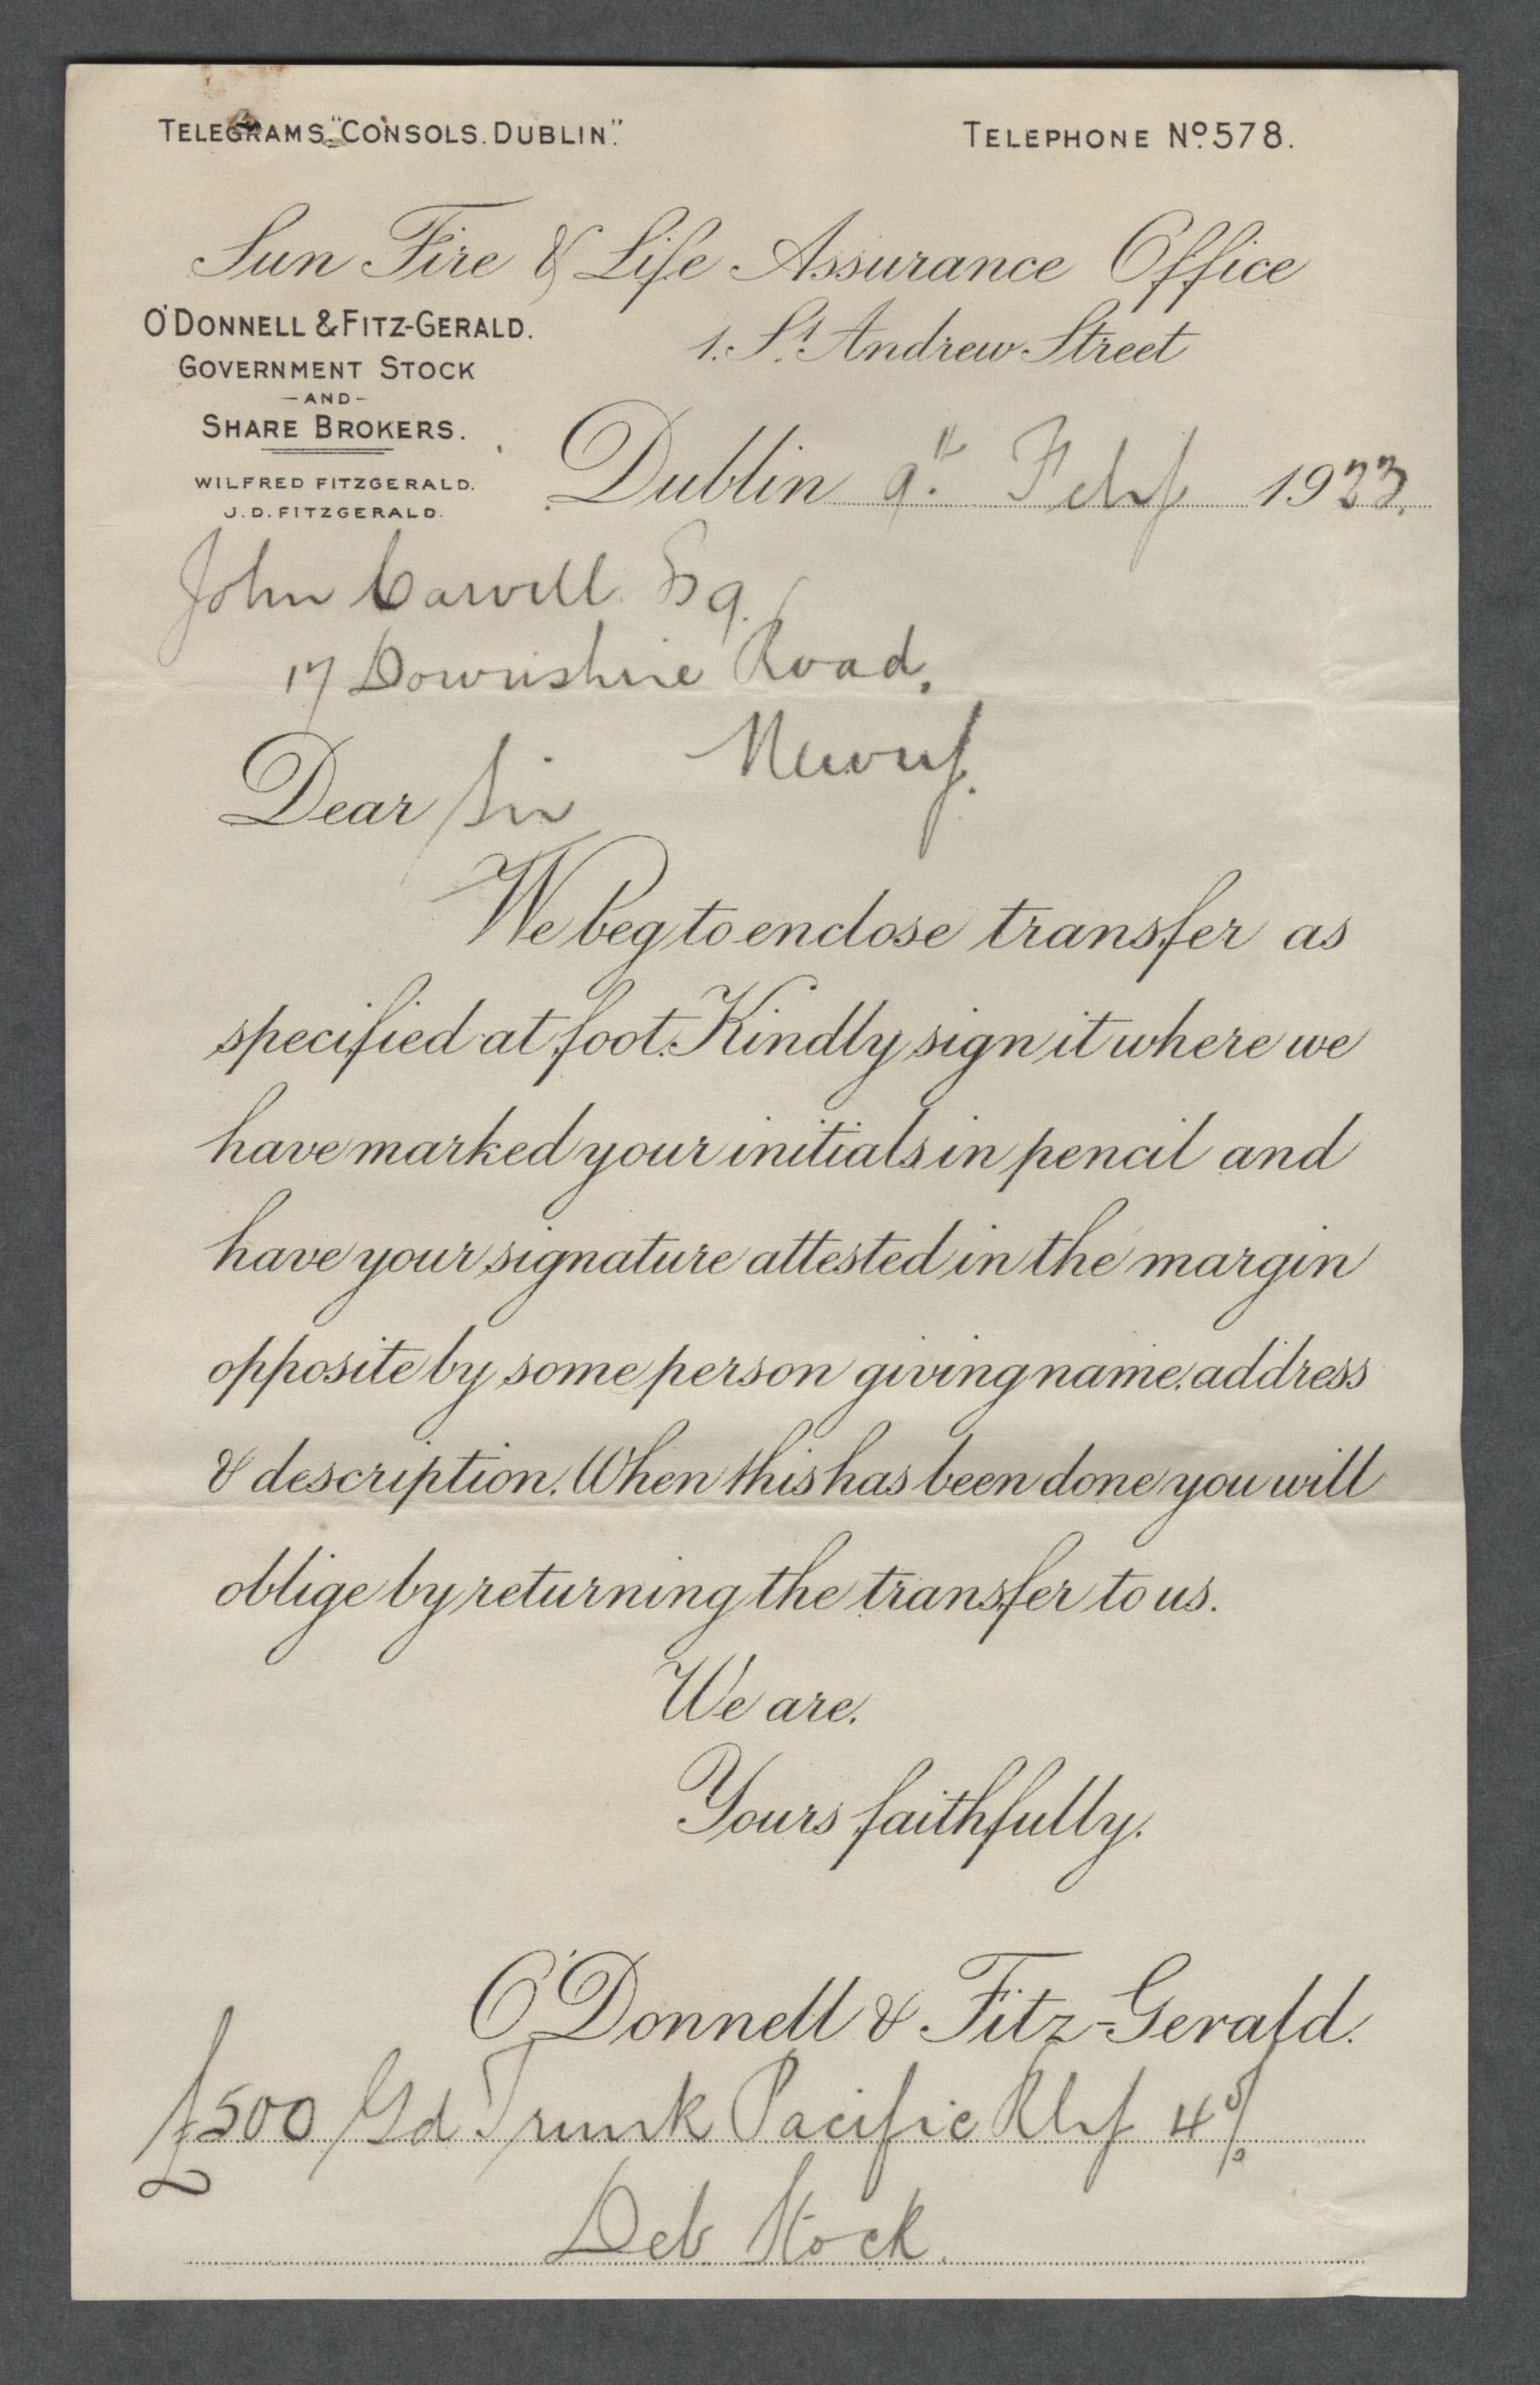 TELEGRAMS. "CONSOLS. DUBLIN."
TELEPHONE Nº 578.
Sun Fire & Life Assurance Office
O'DONNELL & FITZ-GERALD.
1. St. Andrew Street
GOVERNMENT STOCK
-AND-
SHARE BROKERS.
WILFRED FITZGERALD.
J.D. FITZGERALD.
Dublin 9th. Feby 1923.
John Carvill Esq.
17 Downshire Road.
Newry.
Dear Sir
We beg to enclose transfer as
specified at foot. Kindly sign it where we
have marked your initials in pencil and
have your signature attested in the margin
opposite by some person giving name. address
& description. When this has been done you will
oblige by returning the transfer to us.
We are.
Yours faithfully.
O'Donnell & Fitz-Gerald.
£500 Gd Trunk Pacific Rly 4%
Deb Stock.